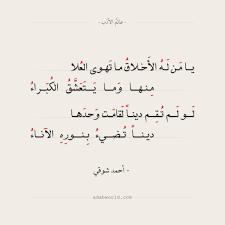 - عالم الأدب -
يا مَن لَهُ الأَخلاقُ ما تَهوى العُلا
مِنها وَما يَتَعَشَّقُ الكُبَراءُ
لَو لَم تُقِم ديناً لَقامَت وَحدَها
ديناً تُضيءُ بِنورِهِ الآناءُ
- أحمد شوقي -
adabworld.com